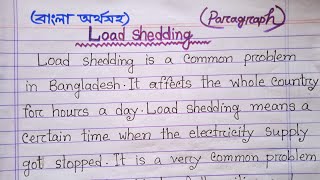 (বাংলা অর্থসহ) (Paragraph)
Load shedding
Load shedding is a common problem
in Bangladesh. It affects the whole country
for hours a day. Load shedding means a
certain time when the electricity supply
got stopped. It is a very common problem